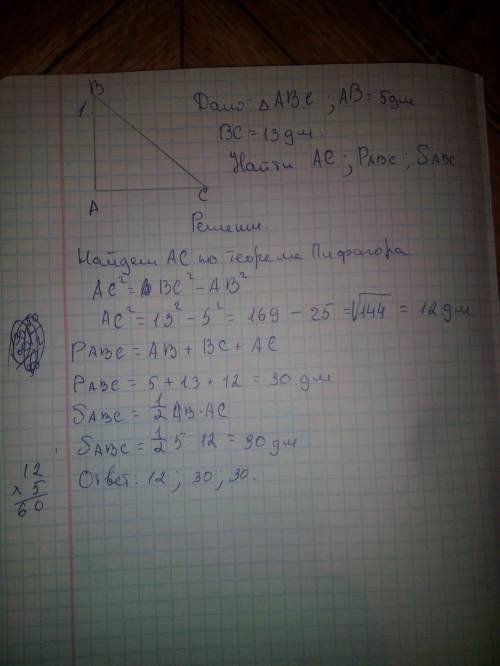 B
1
A
C
Дано: △ABC ; AB = 5дм
BC = 13 дм.
Найти AC ; PABC , SABC.
Решение
Найдем AC по теореме Пифагора
AC² = BC² - AB²
AC² = 13² - 5² = 169 - 25 = √144 = 12 дм
PABC = AB + BC + AC
PABC = 5 + 13 + 12 = 30 дм
SABC = 1/2 AB · AC
SABC = 1/2 5 12 = 30 дм
Ответ: 12 ; 30 ; 30.
12
x 5
60